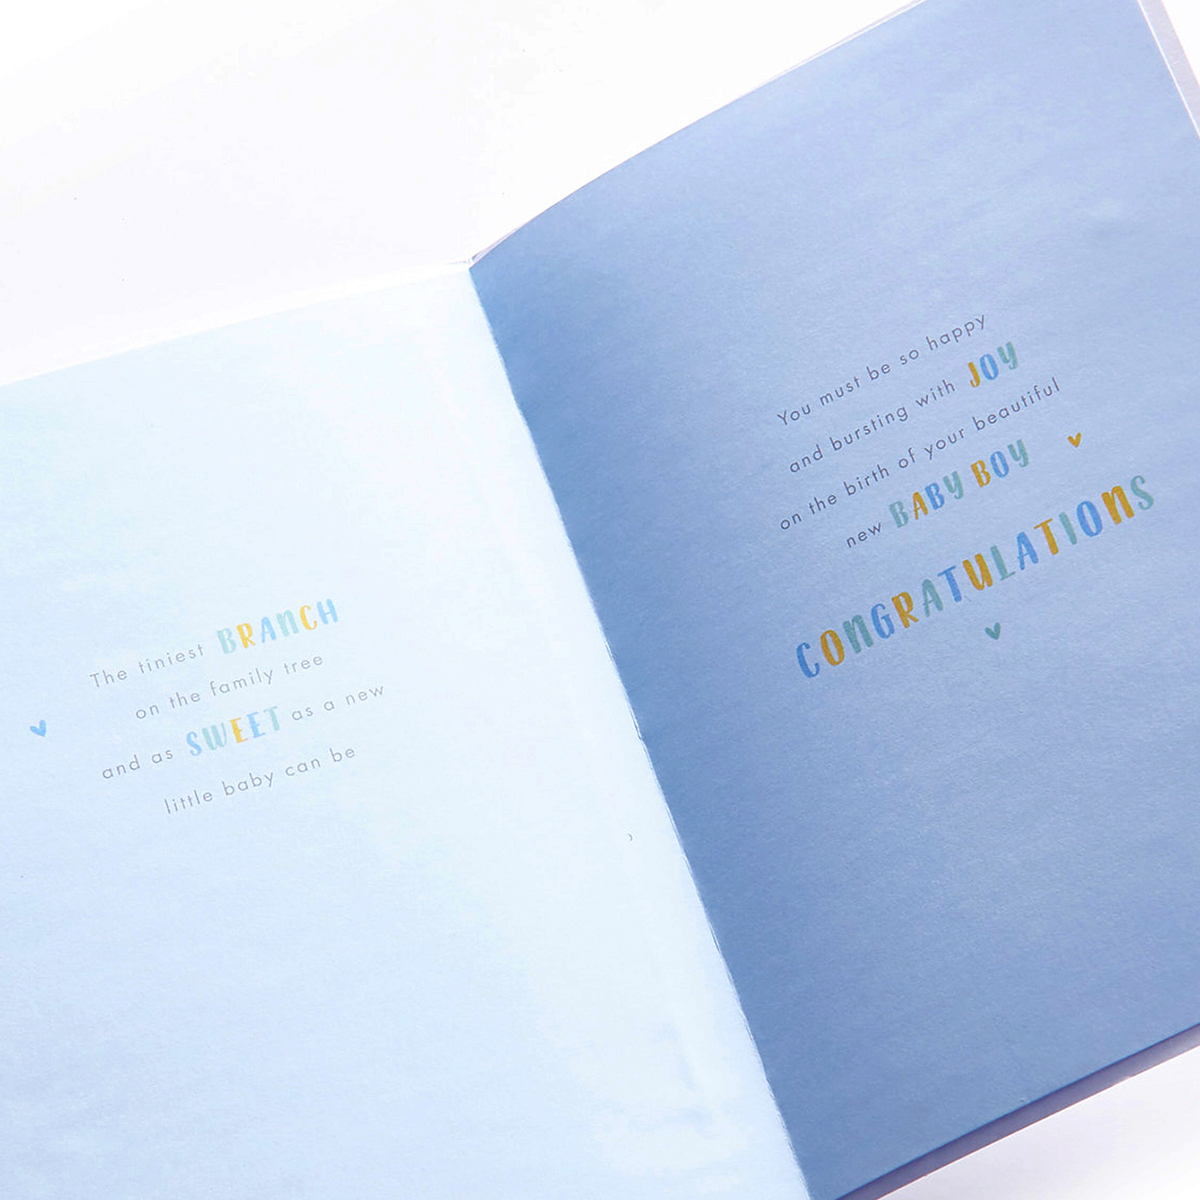 The tiniest BRANCH
on the family tree
and as SWEET as a new
little baby can be
You must be so happy
and bursting with JOY
on the birth of your beautiful
new BABY BOY
CONGRATULATIONS